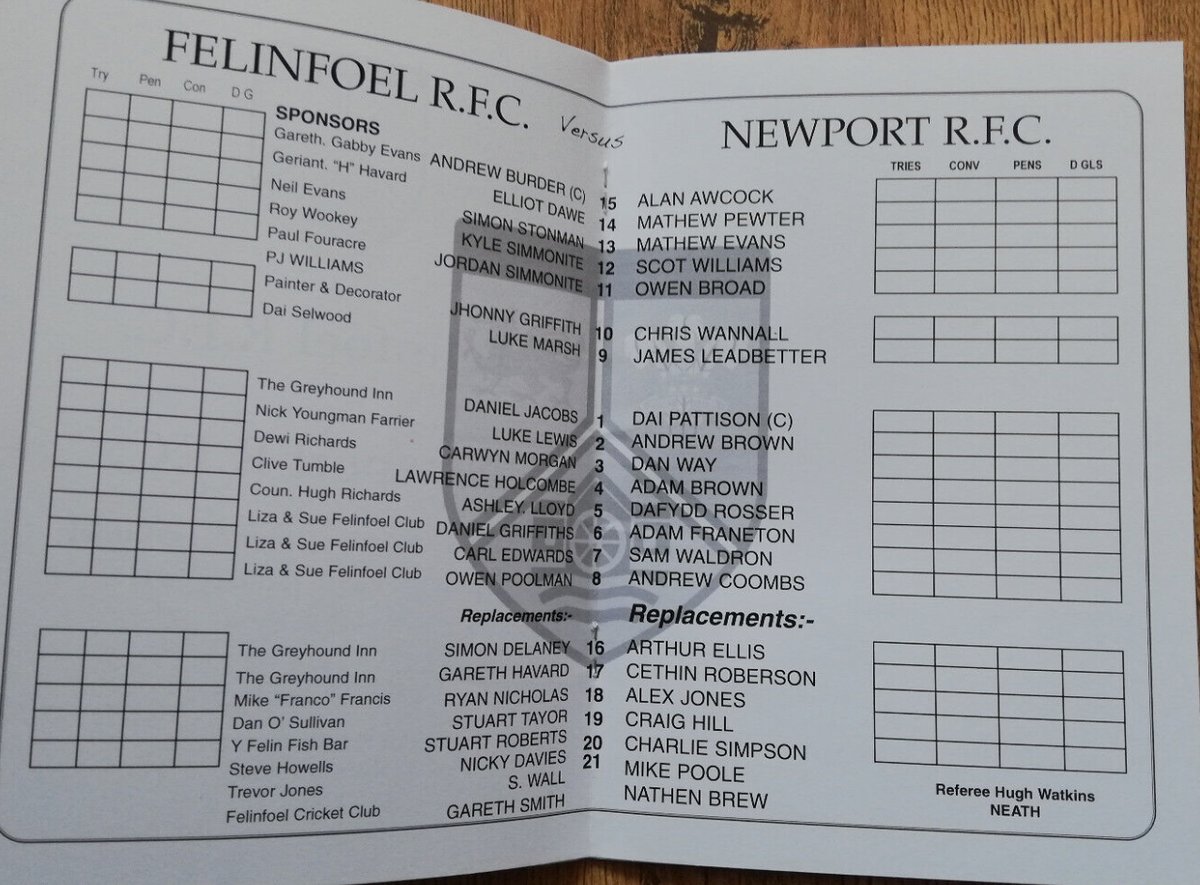 FELINFOEL R.F.C.
Versus
Try Pen Con D G
SPONSORS
Gareth. Gabby Evans ANDREW BURDER (C)
Geriant. “H” Havard ELLIOT DAWE
Neil Evans SIMON STONMAN
Roy Wookey KYLE SIMMONITE
Paul Fouracre JORDAN SIMMONITE
PJ WILLIAMS
Painter & Decorator JHONNY GRIFFITH
Dai Selwood LUKE MARSH
The Greyhound Inn DANIEL JACOBS
Nick Youngman Farrier LUKE LEWIS
Dewi Richards CARWYN MORGAN
Clive Tumble LAWRENCE HOLCOMBE
Coun. Hugh Richards ASHLEY. LLOYD
Liza & Sue Felinfoel Club DANIEL GRIFFITHS
Liza & Sue Felinfoel Club CARL EDWARDS
Liza & Sue Felinfoel Club OWEN POOLMAN
Replacements:-
The Greyhound Inn SIMON DELANEY
The Greyhound Inn GARETH HAVARD
Mike “Franco” Francis RYAN NICHOLAS
Dan O’ Sullivan STUART TAYOR
Y Felin Fish Bar STUART ROBERTS
Steve Howells NICKY DAVIES
Trevor Jones S. WALL
Felinfoel Cricket Club GARETH SMITH
NEWPORT R.F.C.
TRIES CONV PENS D GLS
15 ALAN AWCOCK
14 MATHEW PEWTER
13 MATHEW EVANS
12 SCOT WILLIAMS
11 OWEN BROAD
10 CHRIS WANNALL
9 JAMES LEADBETTER
1 DAI PATTISON (C)
2 ANDREW BROWN
3 DAN WAY
4 ADAM BROWN
5 DAFYDD ROSSER
6 ADAM FRANETON
7 SAM WALDRON
8 ANDREW COOMBS
Replacements:-
16 ARTHUR ELLIS
17 CETHIN ROBERSON
18 ALEX JONES
19 CRAIG HILL
20 CHARLIE SIMPSON
21 MIKE POOLE
NATHEN BREW
Referee Hugh Watkins
NEATH